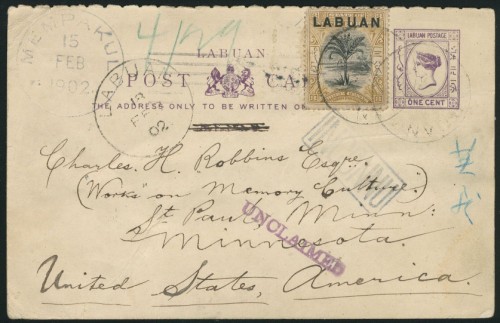 MEMPAKUL
15
FEB
1902
4/29
LABUAN
LABUAN
LABUAN POSTAGE
ONE CENT
POST CA
THE ADDRESS ONLY TO BE WRITTEN
LABUAN
18
FE
02
N.Y.
Charles. H. Robbins Esqre.
("Works" on Memory Culture".)
St Paul. Minn:
Minnesota.
UNCLAIMED
United States, America.